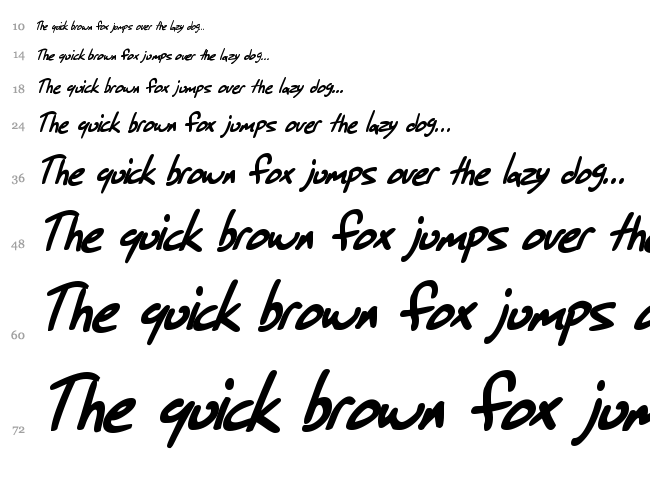 10 The quick brown fox jumps over the lazy dog...
14 The quick brown fox jumps over the lazy dog...
18 The quick brown fox jumps over the lazy dog...
24 The quick brown fox jumps over the lazy dog...
36 The quick brown fox jumps over the lazy dog...
48 The quick brown fox jumps over th
60 The quick brown fox jumps
72 The quick brown fox jum